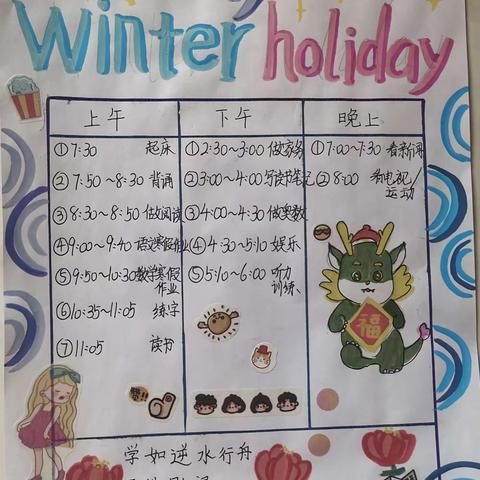 Winter holiday
上午
下午
晚上
①7:30 起床
②7:50~8:30 背诵
③8:30~8:50 做阅读
④9:00~9:40 语文寒假作业
⑤9:50~10:30 数学寒假
作业
⑥10:35~11:05 练字
⑦11:05 读书
①2:30~3:00 做家务
②3:00~4:00 写读书笔记
③4:00~4:30 做奥数
④4:30~5:10 娱乐
⑤5:10~6:00 听力
训练
①7:00~7:30 看新闻
②8:00 看电视/
运动
福
赞!!
学如逆水行舟